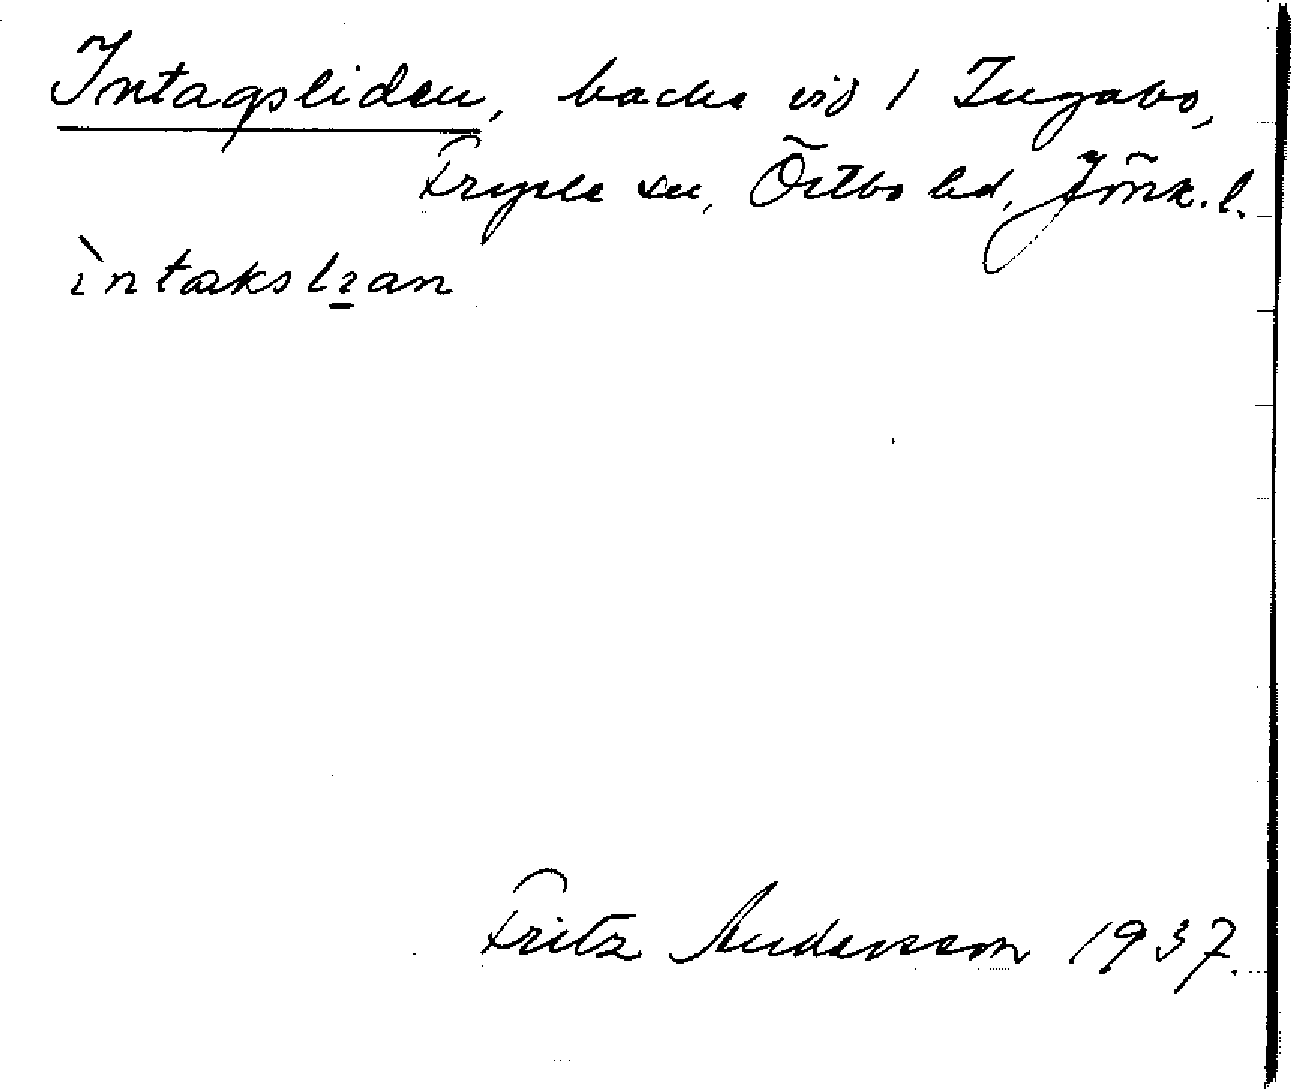 Intagsliden, backe vid 1 Lugabo,
Fryele sn, Östbo hd, Jönk. l.
ìntakslɪan
Fritz Andersson 1937.